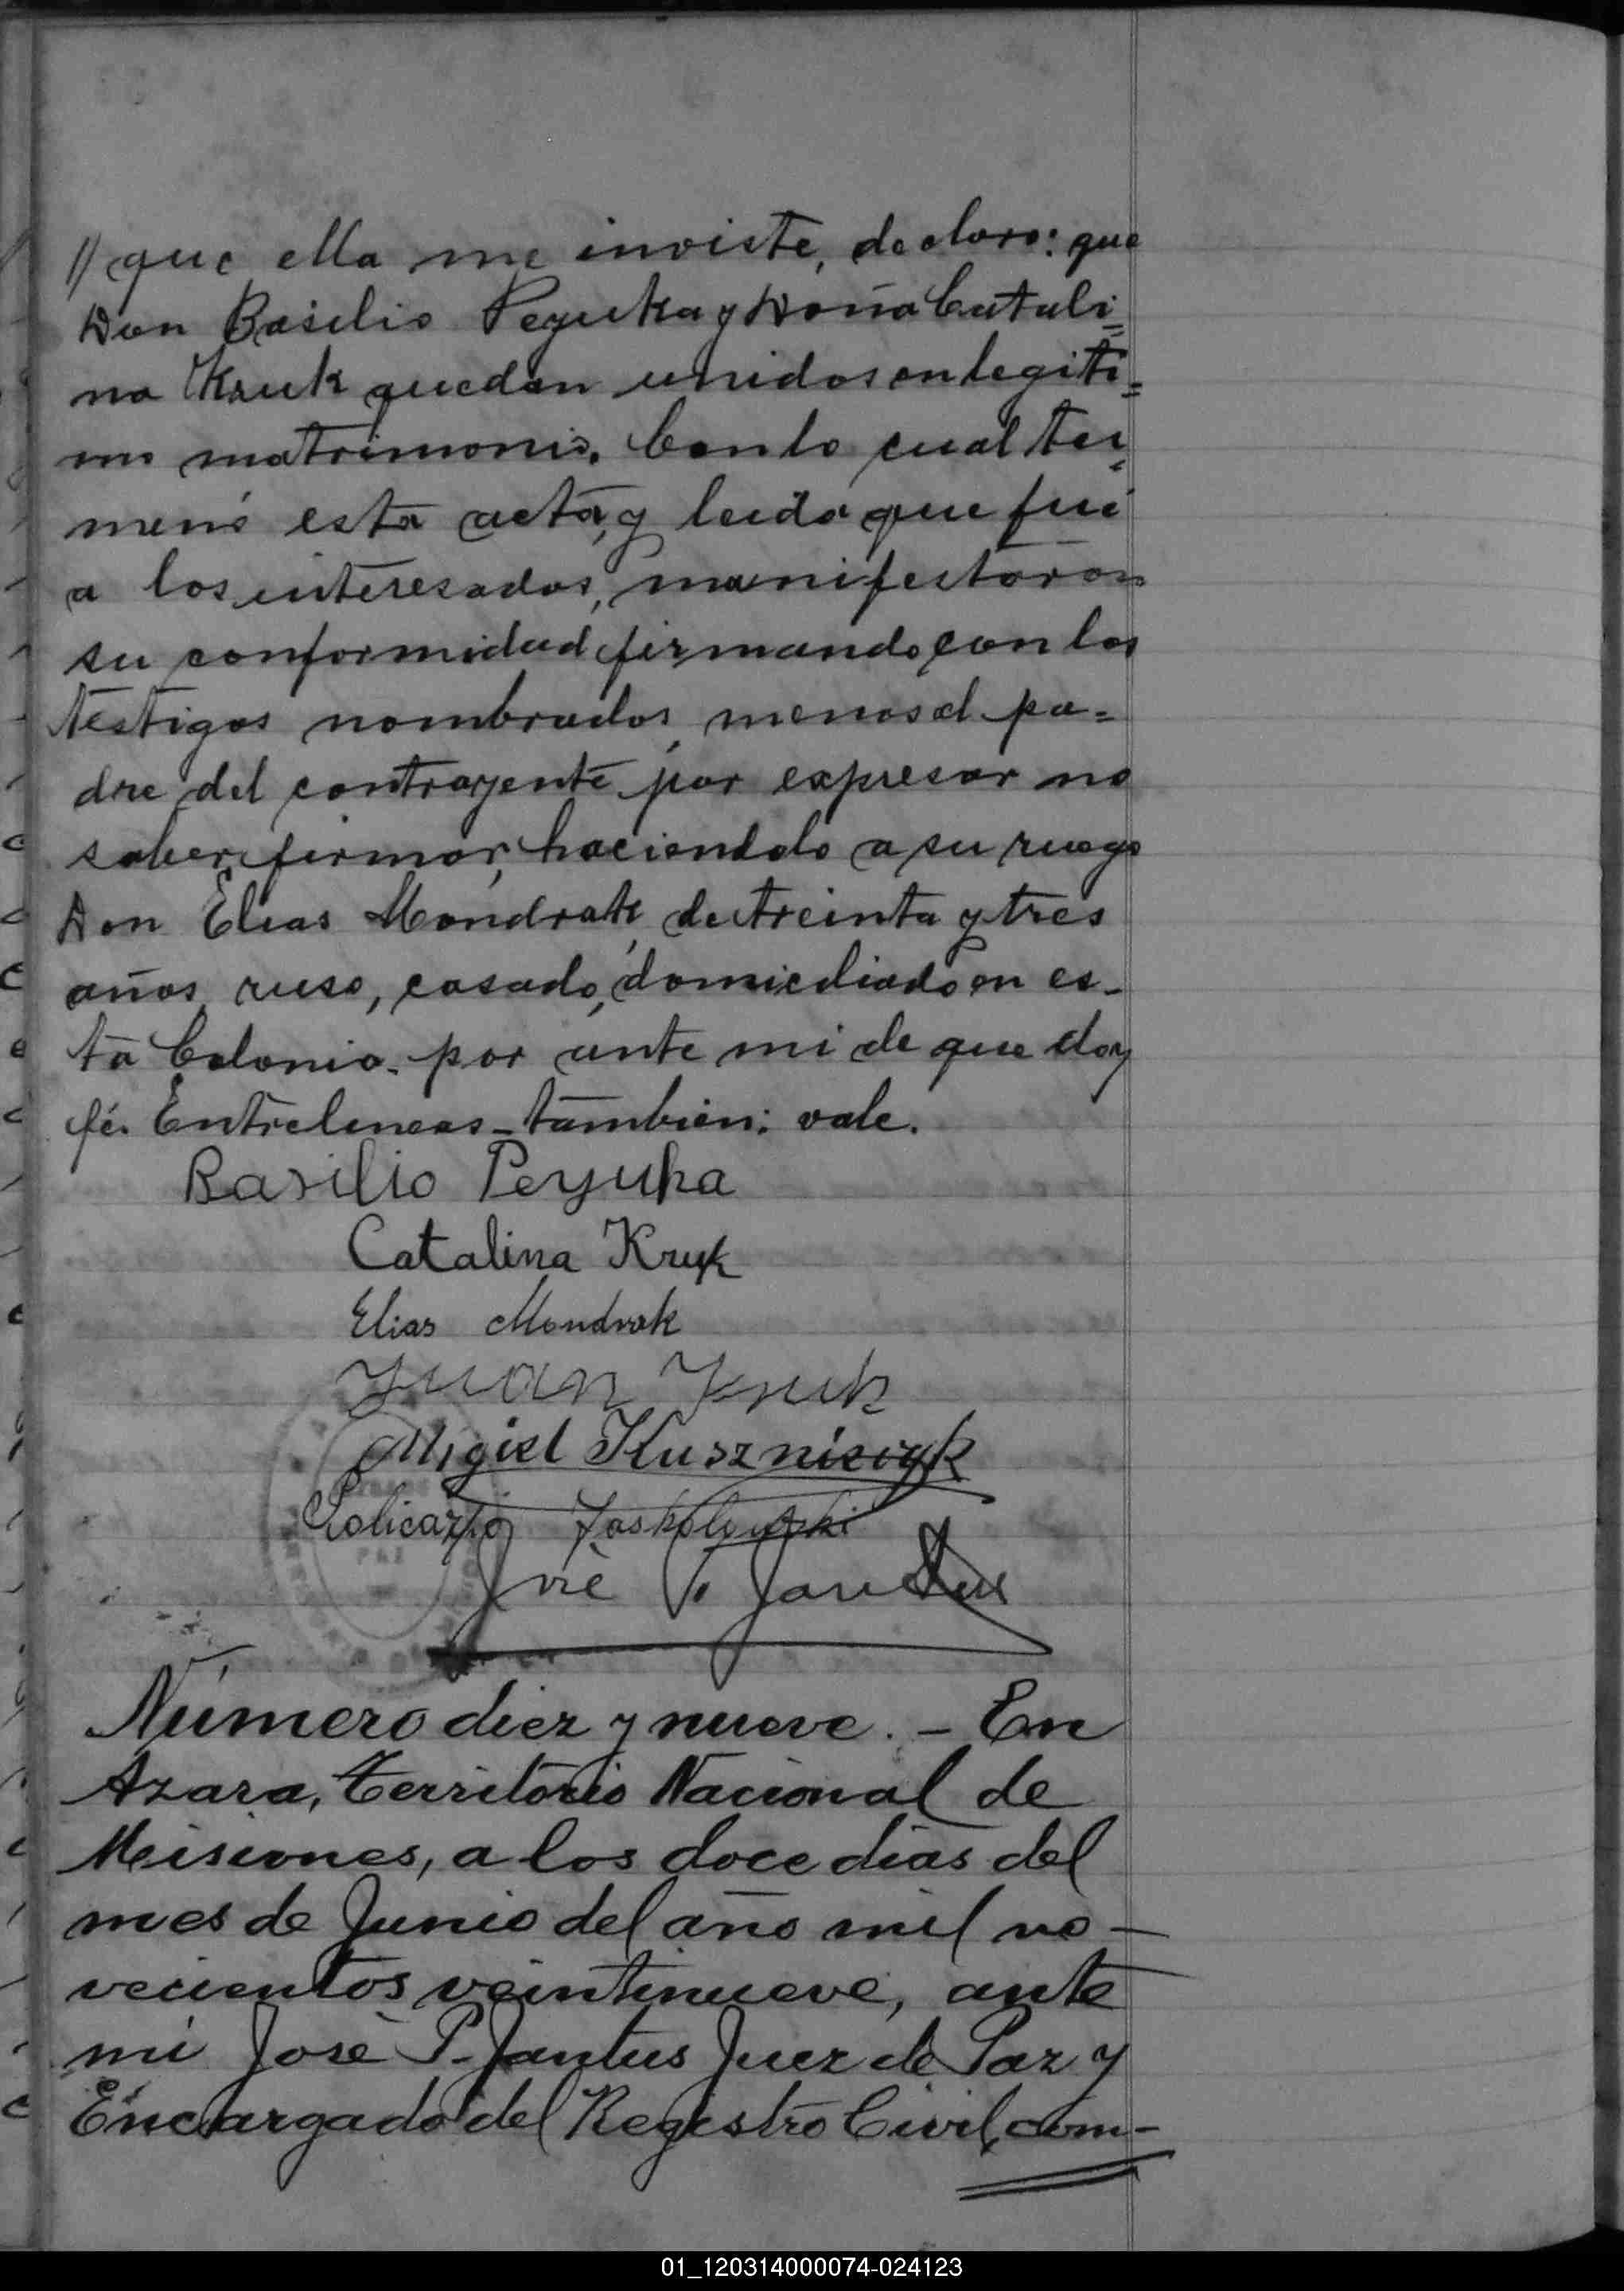 que ella me inviste, declaro: que
Don Basilio Peyuka y Doña Catali=
na Kruk quedan unidos en legiti=
mo matrimonio. Con lo cual ter=
minó esta acta, y leida que fué
a los interesados, manifestaron
su conformidad firmando con los
testigos nombrados, menos el pa=
dre del contrayente por expresar no
saber firmar, haciendolo a su ruego
Don Elias Mondrak, de treinta y tres
años, ruso, casado, domiciliado en es-
ta Colonia. por ante mi de que doy
fé. Entrelineas - tambien: vale.
Basilio Peyuka
Catalina Kruk
Elias Mondrak
Juan Kruk
Migiel Kuszniszyk
Policarpio
José P. Jantus
PAZ
Número diez y nueve. - En
Azara, Territorio Nacional de
Misiones, a los doce dias del
mes de Junio del año mil no-
vecientos veintinueve, ante
mi José P. Jantus Juez de Paz y
Encargado del Registro Civil, com-
01_120314000074-024123